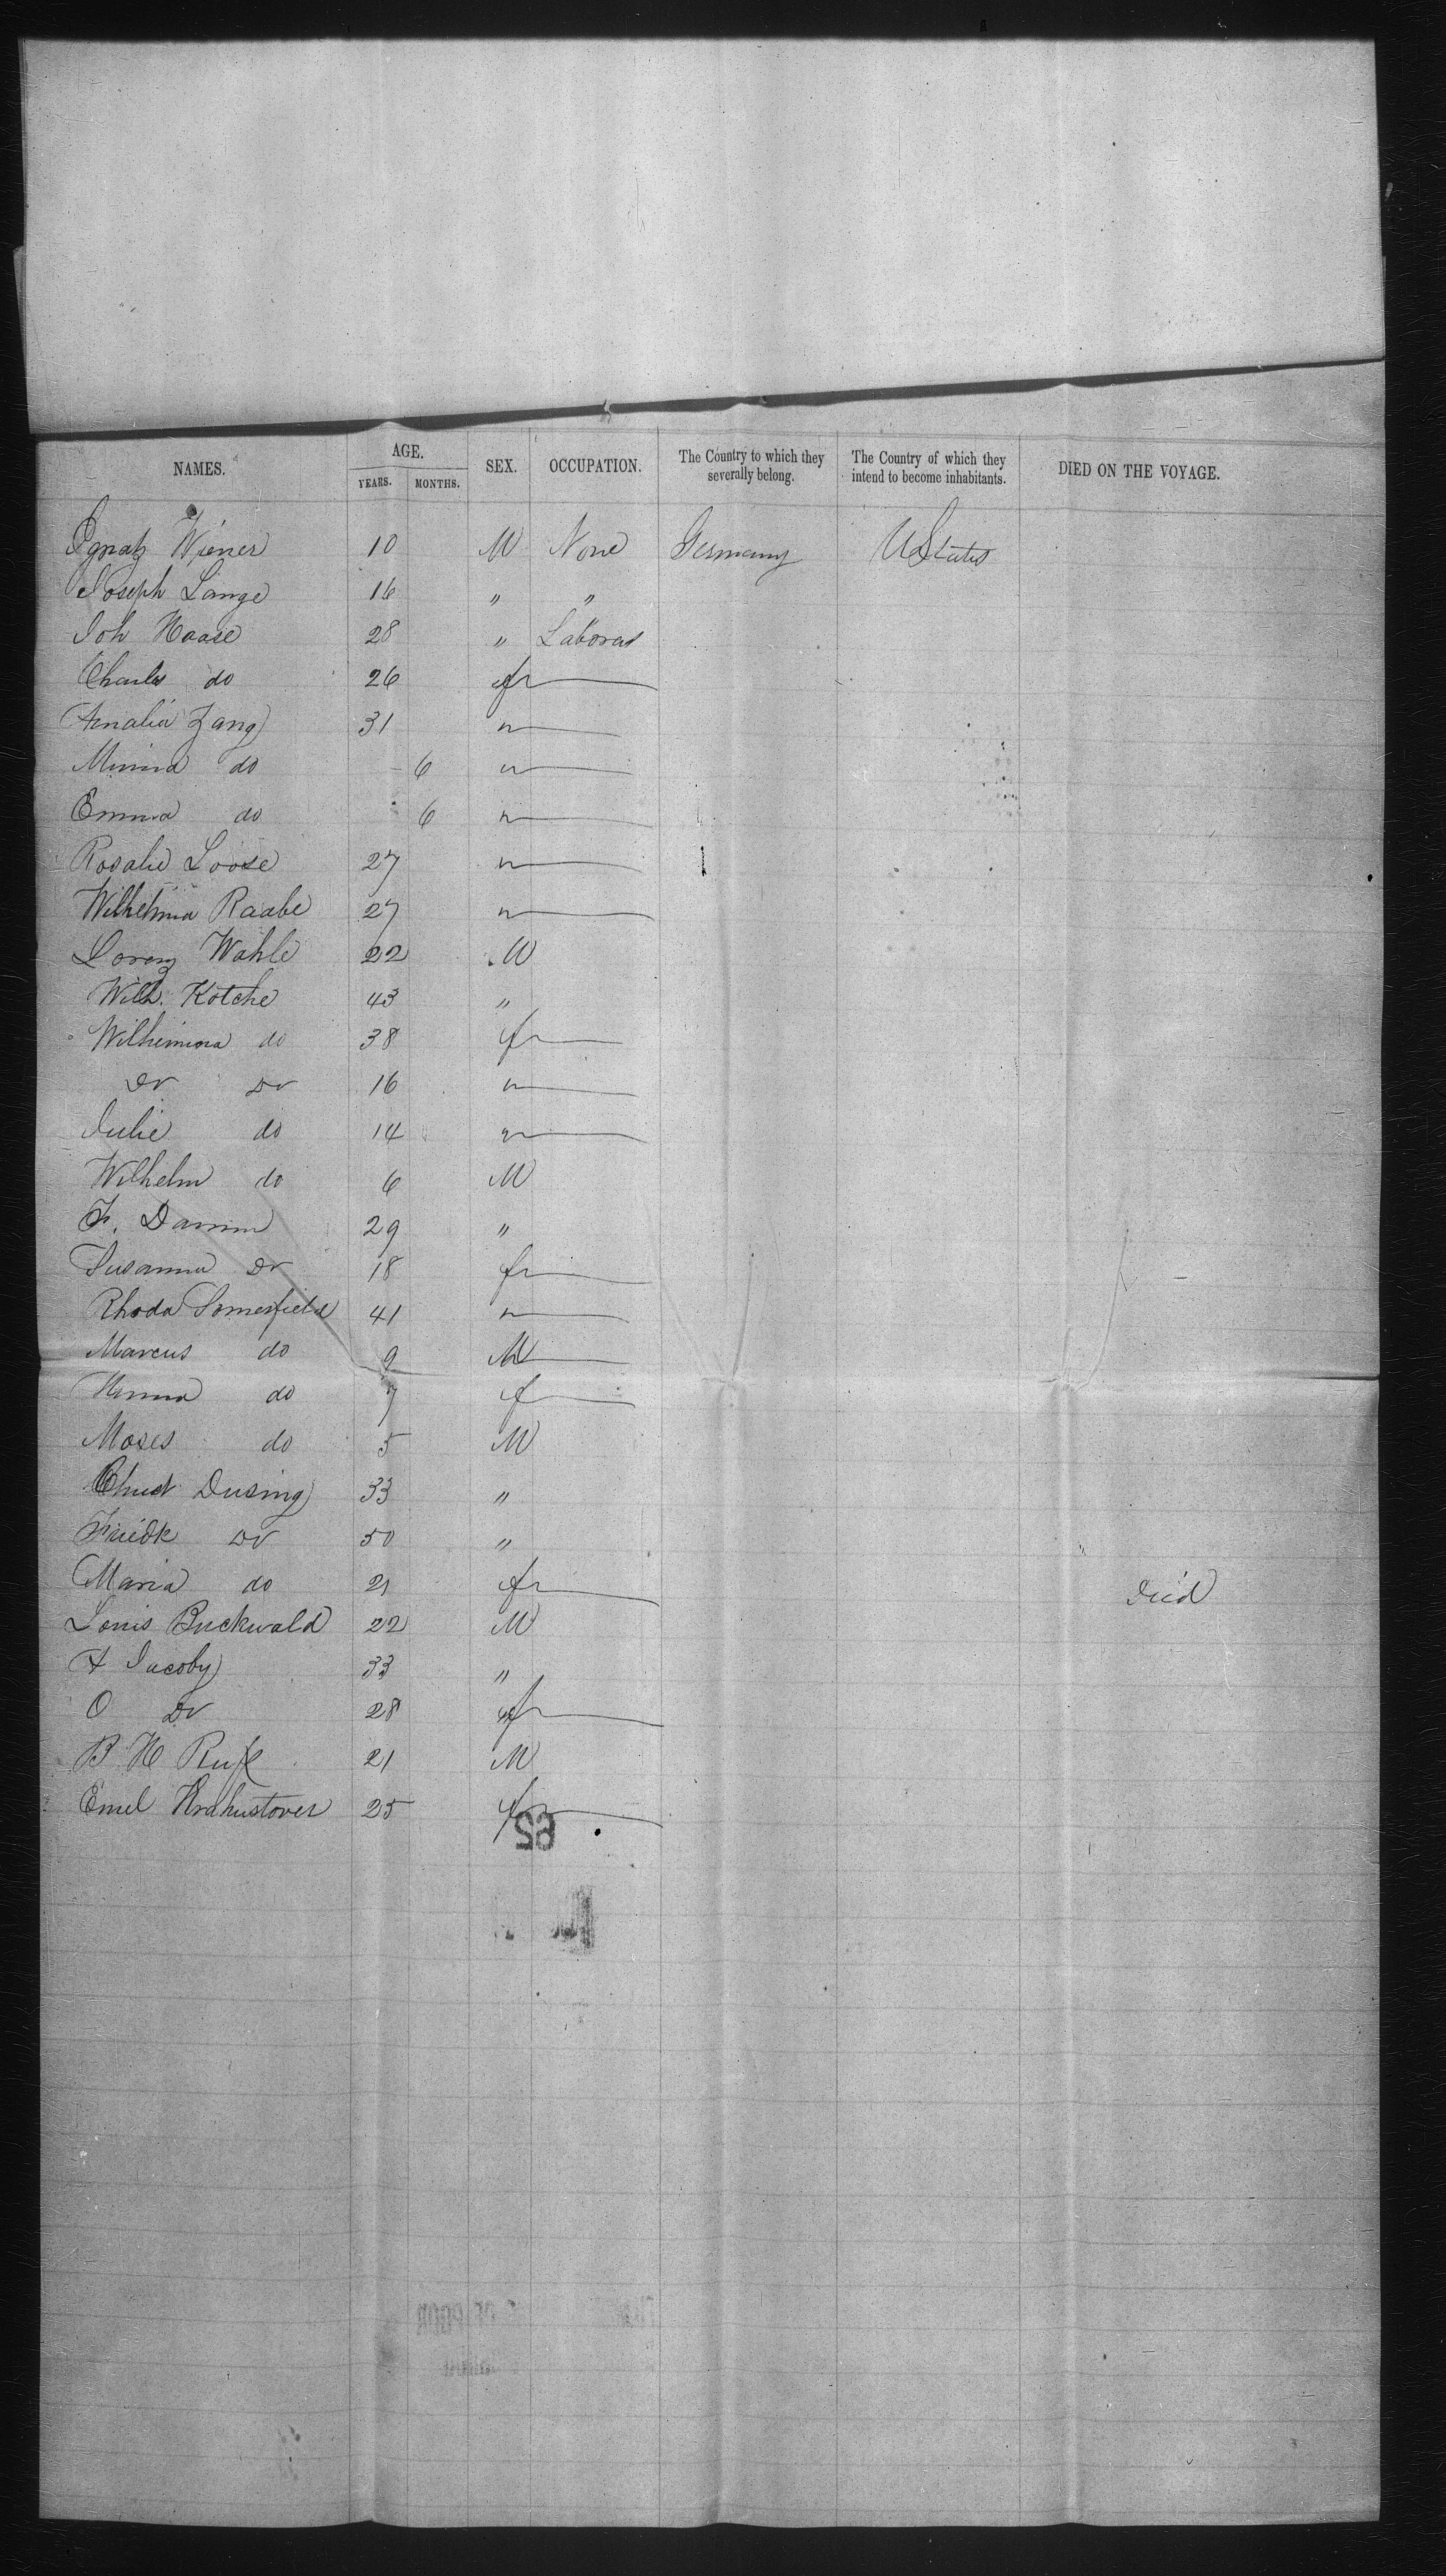 NAMES. AGE. YEARS. MONTHS. SEX. OCCUPATION. The Country to which they severally belong. The Country of which they intend to become inhabitants. DIED ON THE VOYAGE.
Ignatz Wiener 10 M None Germany UStates
Joseph Lange 16 " "
Joh Haase 28 " Laborer
Charles do 26 f
Amalia Zang 31 "
Minna do 6 "
Emma do 6 "
Rosalie Loose 27 "
Wilhelmina Raabe 27 "
Lorenz Wahle 22 M
Wilh. Kotche 43 "
Wilhimina do 38 f
Do Do 16 "
Julie do 14 "
Wilhelm do 6 M
Fr. Damm 29 "
Susanna Do 18 f
Rhoda Somerfield 41 "
Marcus do 9 M
Hanna do 7 f
Moses do 5 M
Christ Dusing 33 "
Friedk Do 50 "
Maria do 21 f Died
Louis Buckwald 22 M
A Jacoby 33 "
O Do 28 f
B H 21 M
Emel 25 f
62